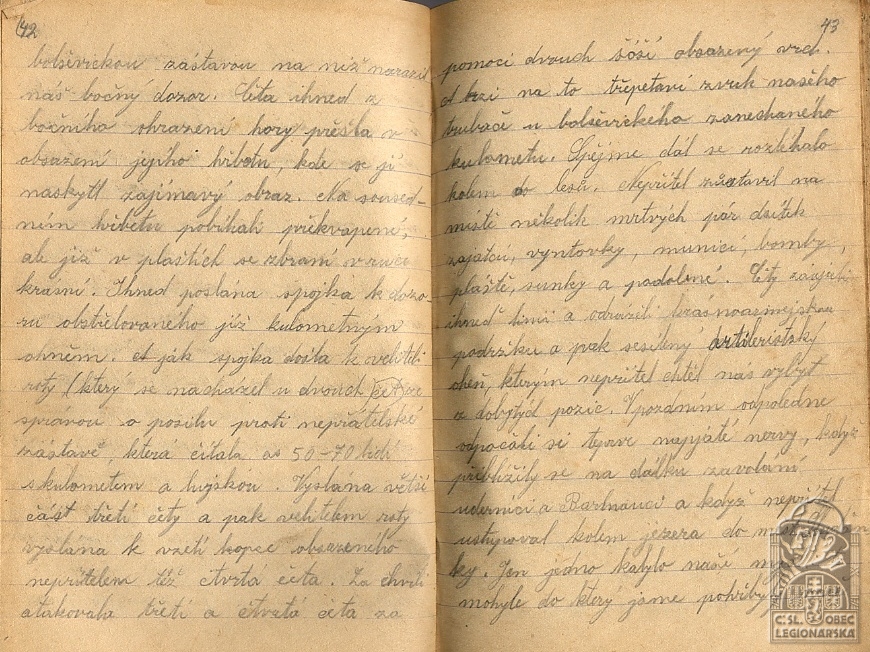 42
bolševickou zástavou na niž narazil
náš bočný dozor. Četa ihned z
bočního ohrazení hory přešla v
obsazení jejího hřbetu, kde se jí
naskytl zajímavý obraz. Na soused-
ním hřbetu pobíhali překvapení,
ale již v pláštích se zbraní v ruce
krasní. Ihned poslána spojka k dozo-
ru obstřelovaného již kulometným
ohněm. A jak spojka došla k veliteli
roty (který se nacházel u dvouch čet) ze
správou o posilu proti nepřátelské
zástavě, která čítala as 50-70 lidí
s kulometem a lujskou. Vyslána větší
část třetí čety a pak velitelem roty
vyslána k vzetí kopce obsazeného
nepřítelem též čtvrtá četa. Za chvíli
atakovala třetí a čtvrtá četa za
43
pomoci dvouch šóší obsazený vrch.
A brzi na to třepetavý zvuk našeho
trubače u bolševického zanechaného
kulometu. Spějme dál se rozléhalo
kolem do lesů. Nepřítel zůstavil na
místě několik mrtvých pár desítek
zajatců, vyntovky, munici, bomby,
pláště, sumky a podobné. Čety zaujali
ihned linii a odrazili krásnoarmejskou
podržku a pak sesílený artileristský
oheň, kterým nepřítel chtěl nás vybýt
z dobytých pozic. V pozdním odpoledne
odpočali si teprve napjaté nervy, když
přiblížily se na dálku zavolání
uderníci a Barnauci a když nepřítel
ustupoval kolem jezera do
ky. Jen jedno kalylo naše
mohyle do který jsme pohřby
ČSL. OBEC
LEGIONÁŘSKÁ